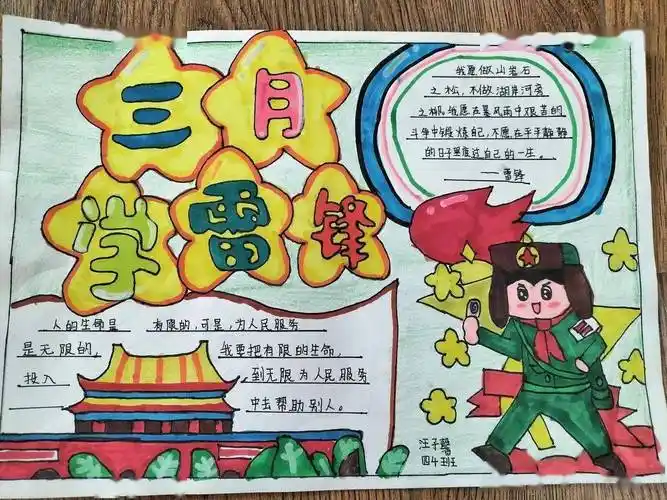 三月
学雷锋
我愿做山岩石
之松，不做湖岸河旁
之柳。我愿在暴风雨中艰苦的
斗争中锻炼自己，不愿在平平静静
的日子里度过自己的一生。
——雷锋
人的生命是 有限的，可是，为人民服务
是无限的， 我要把有限的生命，
投入 到无限为人民服务
中去帮助别人。
汪子馨
四4班